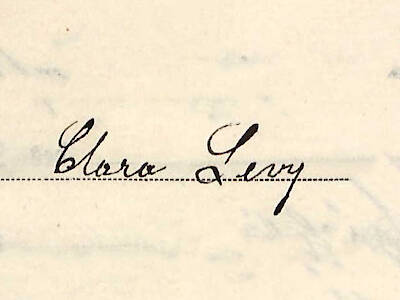 Clara Levy